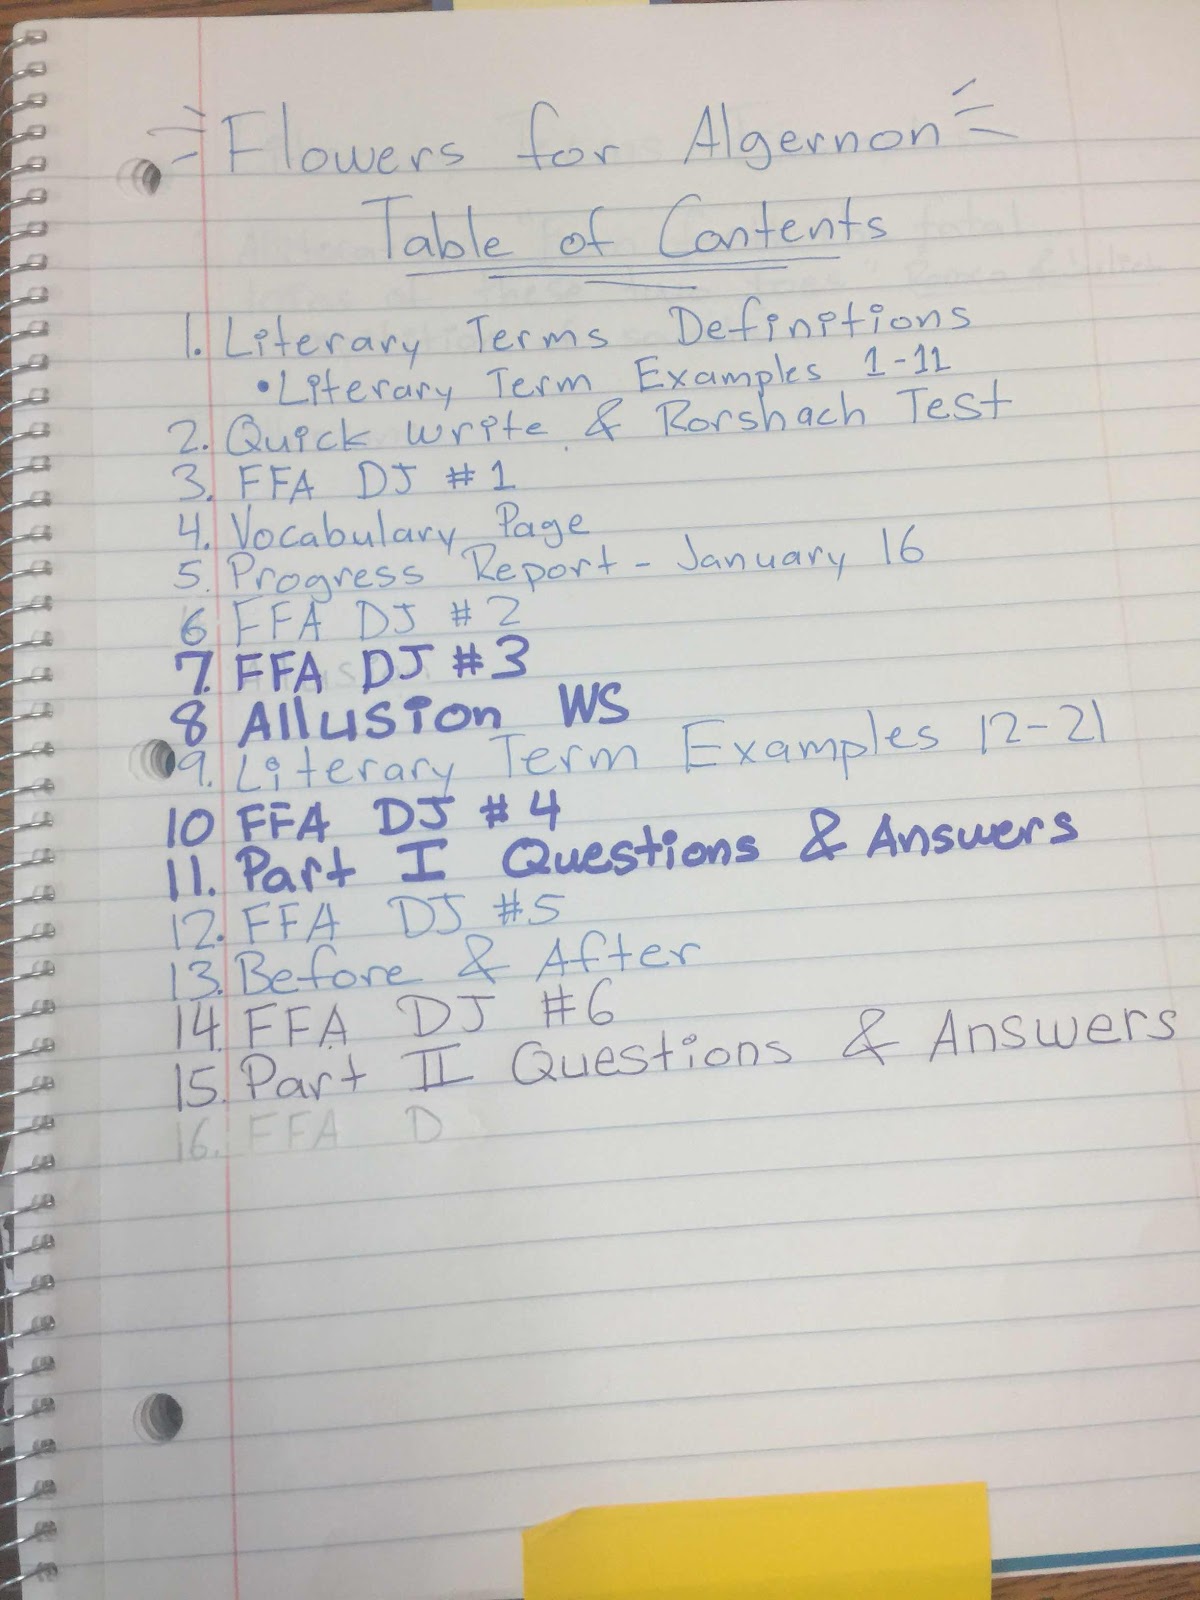 Flowers for Algernon
Table of Contents
1. Literary Terms Definitions
• Literary Term Examples 1-11
2. Quick Write & Rorshach Test
3. FFA DJ #1
4. Vocabulary Page
5. Progress Report - January 16
6 FFA DJ #2
7. FFA DJ #3
8 Allusion WS
9. Literary Term Examples 12-21
10 FFA DJ #4
11. Part I Questions & Answers
12. FFA DJ #5
13. Before & After
14. FFA DJ #6
15. Part II Questions & Answers
16. FFA D